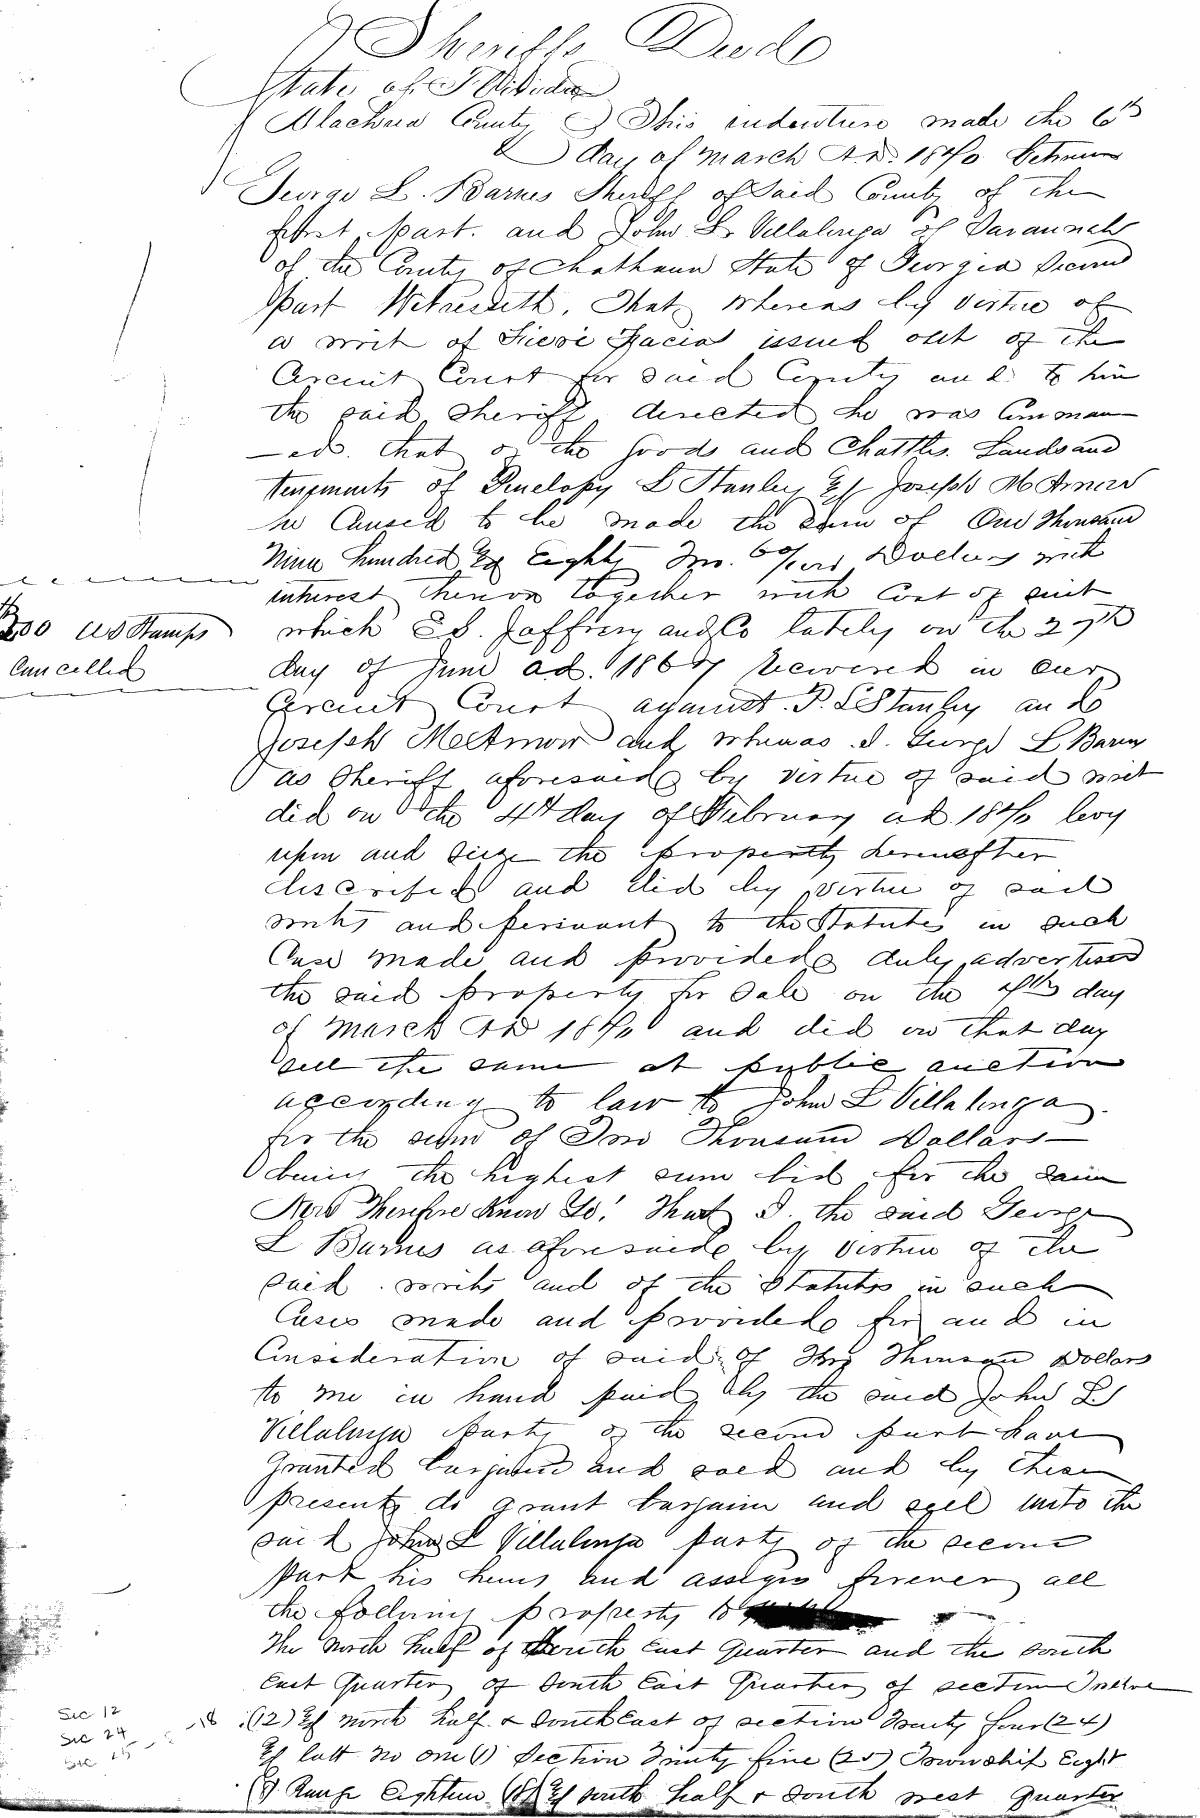 Sheriffs Deed
State of Florida
Alachua County } This indenture made the 6th
day of March A.D. 1870 between
George L. Barnes Sheriff of Said County of the
first part. and John L. Villalonga of Savannah
of the County of Chatham State of Georgia Second
part Witnesseth, That, whereas by virtue of
a writ of Fieri Facias issued out of the
Circuit Court for said County and to him
the said Sheriff directed he was Comman
-ed. that of the Goods and Chattles. Lands and
tenements of Penelopy L Stanley & Joseph McArnow
he Caused to be made the sum of One Thousand
Nine hundred & Eighty Two. 60/100 Dollars with
interest thereon together with Cost of suit
200 US Stamps
Cancelled
which E S. Jaffrey and Co lately on the 27th
day of June ad. 1867 recovered in our
Circuit Court against P. L Stanley and
Joseph McArnow and whereas I. George L Barnes
as Sheriff aforesaid by virtue of said writ
did on the 4th day of February ad 1870 levy
upon and seize the property hereinafter
discribed and did by virtue of said
writs and persuant to the Statutes in such
Case made and provided duly advertised
the said property for sale on the 7th day
of March AD 1870 and did on that day
sell the same at public auction
according to law to John L Villalonga.
for the sum of Two Thousand Dollars
being the highest sum bid for the same
Now Therefore Know Ye! That I. the said George
L Barnes as aforesaid by virtue of the
said writs and of the Statutes in such
Cases made and provided for and in
Consideration of said of Two Thousan Dollars
to me in hand paid by the said John L
Villalonga party of the second part have
Granted bargained and sold and by these
presents do grant bargain and sell unto the
said John L Villalonga party of the second
part his heirs and assigns forever all
the following property to
The North half of South East Quarter and the South
East Quarter of South East Quarter of section Twelve
Sec 12
Sec 24 -18
Sec 25
(12) & north half & South East of section Twenty four (24)
& lott No one (1) Section Twenty five (25) Township Eight
(8) Range Eighteen (18) & south half & South west Quarter